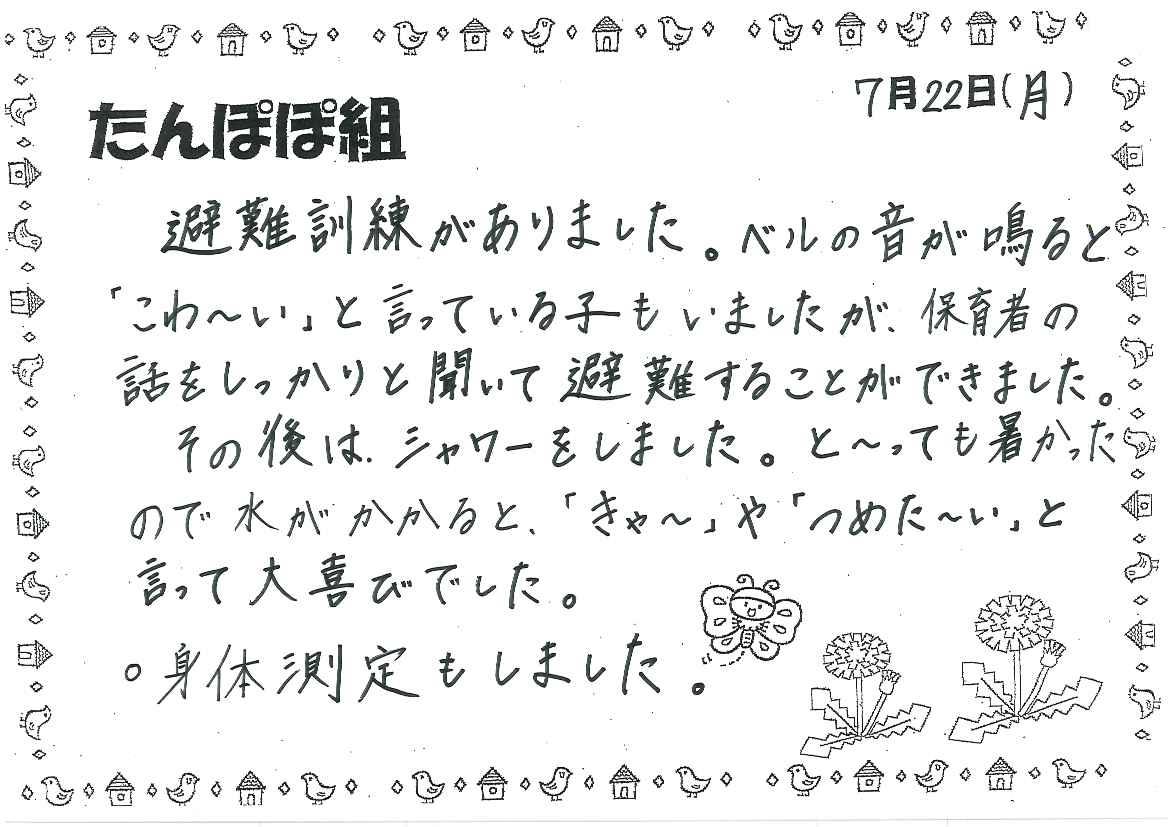 7月22日(月)
たんぽぽ組
避難訓練がありました。ベルの音が鳴ると
「こわ～い」と言っている子もいましたが、保育者の
話をしっかりと聞いて避難することができました。
その後は、シャワーをしました。と～っても暑かった
ので水がかかると、「きゃ～」や「つめた～い」と
言って大喜びでした。
○身体測定もしました。